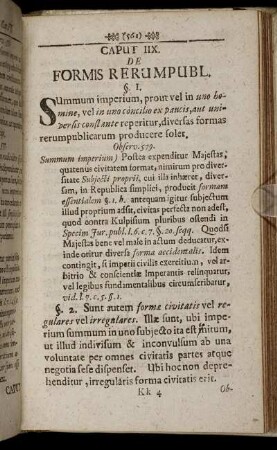 (561)
CAPUT IIX.
DE
FORMIS RERUMPUBL.
§ I.
Summum imperium, prout vel in uno ho-
mine, vel in uno concilio ex paucis, aut uni-
versis constante reperitur, diversas formas
rerumpublicarum producere solet.
Observ. 579.
Summum imperium) Postea expenditur Majestas,
quatenus civitatem format, nimirum pro diver-
sitate Subjecti proprii, cui illa inhæret, diver-
sim, in Republica simplici, producit formam
essentialem §. 1. h. antequam igitur subjectum
illud proprium adsit, civitas perfecta non adest,
quod contra Kulpisum pluribus ostendi in
Specim Jur. publ. l. 6. c. 7. §. 20. seqq. Quodsi
Majestas bene vel male in actum deducatur, ex-
inde oritur diversa forma accidentalis. Idem
contingit, si imperii civilis exercitium, vel ar-
bitrio & conscientiæ Imperantis relinquatur,
vel legibus fundamentalibus circumscribatur,
vid. l. 7. c. 5. §. 1.
§. 2. Sunt autem formæ civitatis vel re-
gulares vel irregulares. Illæ sunt, ubi impe-
rium summum in uno subjecto ita est unitum,
ut illud indivisum & inconvulsum ab una
voluntate per omnes civitatis partes atque
negotia sese dispenset. Ubi hoc non depre-
henditur, irregularis forma civitatis erit.
Kk 4 Ob-